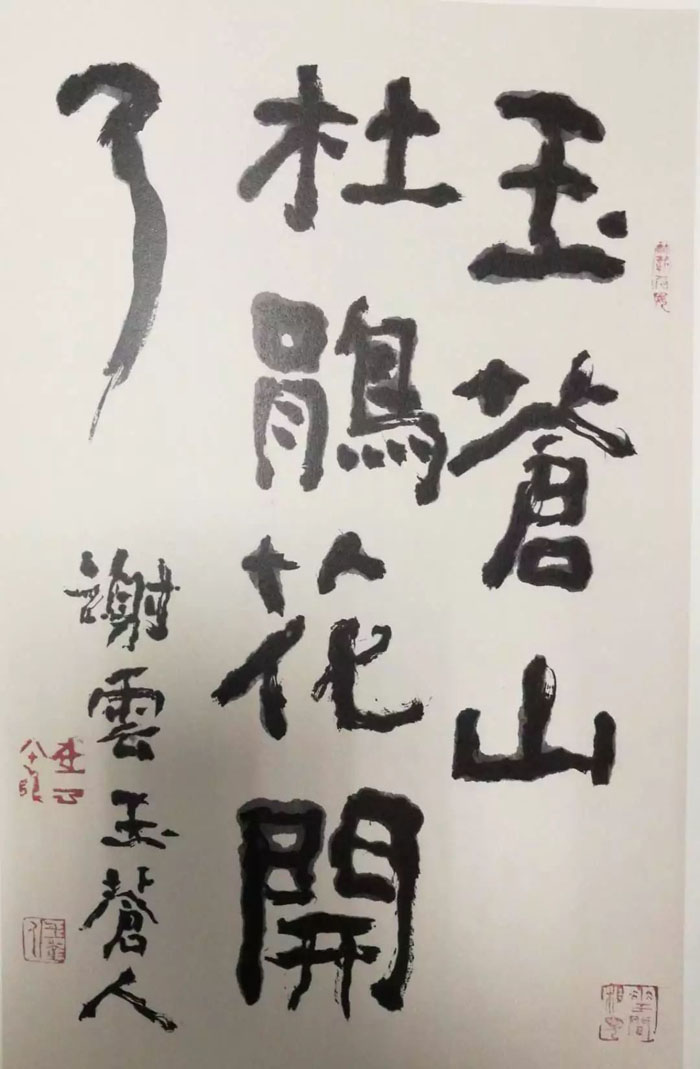 玉蒼山
杜鵑花開
了
謝雲玉蒼人